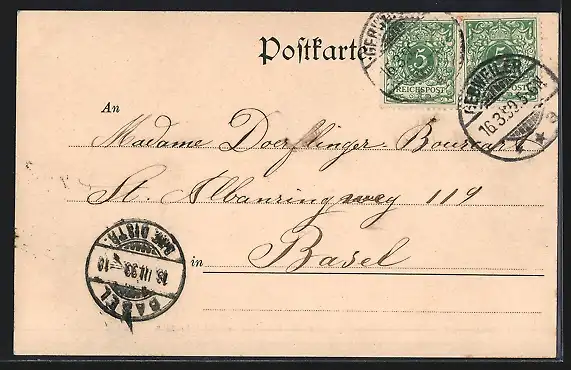 Postkarte
5 5
REICHSPOST
GEBWEILER
16.3.99
An
Madame Doerflinger-Bourcart
St. Albanringweg 119
in Basel
BASEL
16.III.99-10